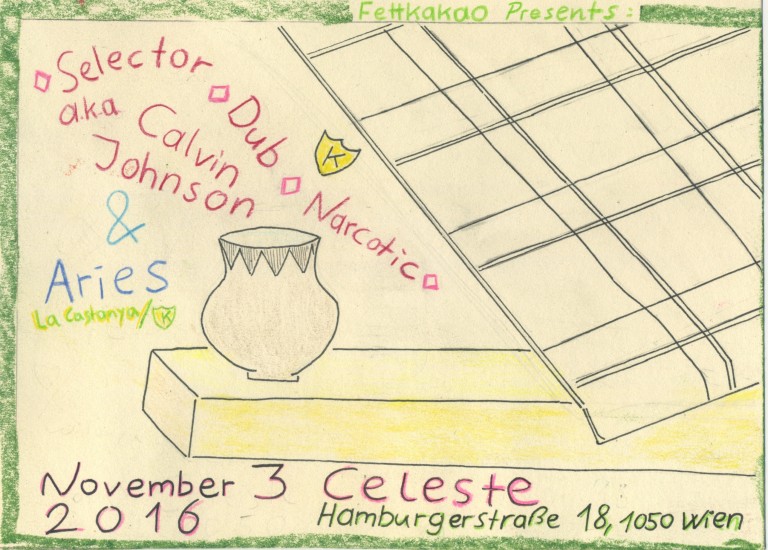 Fettkakao Presents:
Selector
Dub
Narcotic
a.k.a
Calvin
Johnson
K
&
Aries
La Castanya/K
November 3 Celeste
2016 Hamburgerstraße 18, 1050 Wien